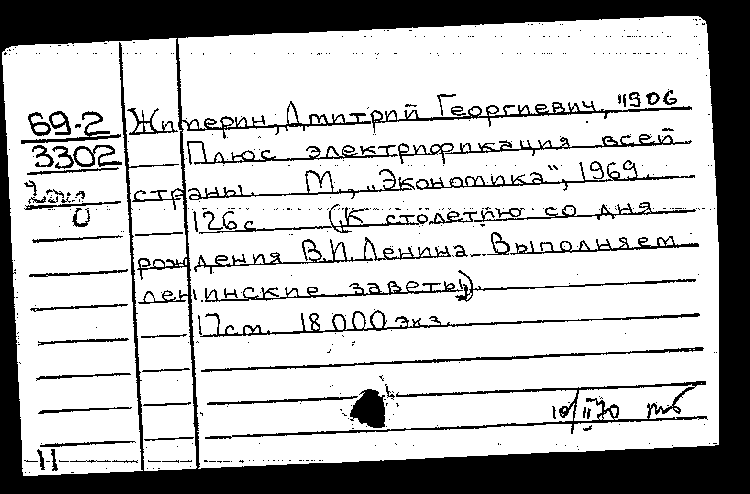 69-2 Житерин, Дмитрий Георгиевич, 1906
3302 Плюс электрификация всей
страны. М., „Экономика", 1969.
0 126 с (К столетию со дня
рождения В.И. Ленина Выполняем
ленинские заветы).
17 см. 18 000 экз.
10/II 70
11